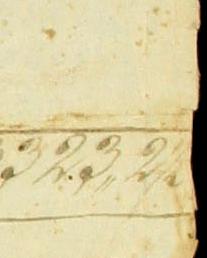 3 2.3,, 2½